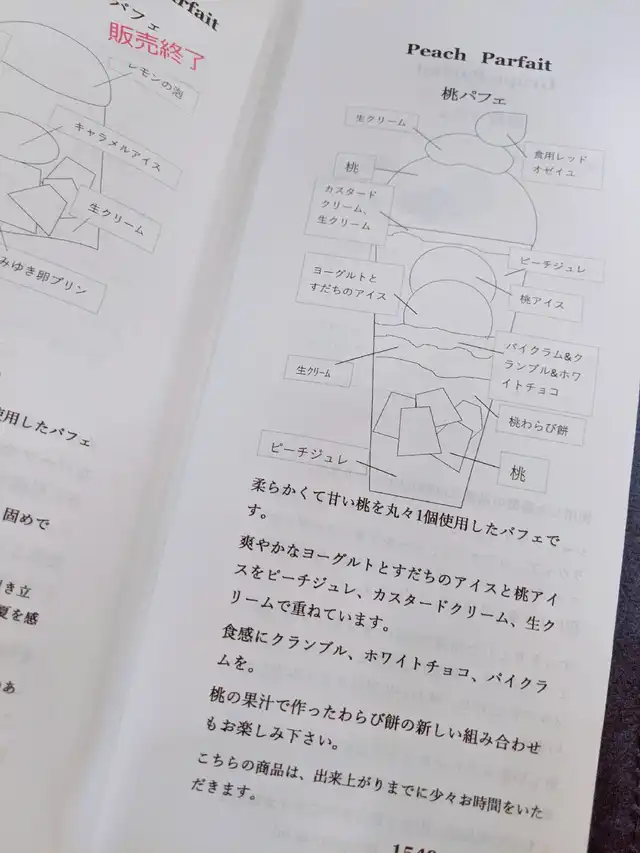 パフェ
販売終了
レモンの泡
キャラメルアイス
生クリーム
みゆき卵プリン
使用したパフェ
固めで
き立
夏を感
Peach Parfait
桃パフェ
生クリーム
食用レッド
オゼイユ
桃
カスタード
クリーム、
生クリーム
ピーチジュレ
ヨーグルトと
すだちのアイス
桃アイス
パイクラム&ク
ランブル&ホワ
イトチョコ
生クリーム
桃わらび餅
ピーチジュレ
桃
柔らかくて甘い桃を丸々1個使用したパフェで
す。
爽やかなヨーグルトとすだちのアイスと桃アイ
スをピーチジュレ、カスタードクリーム、生ク
リームで重ねています。
食感にクランブル、ホワイトチョコ、パイクラ
ムを。
桃の果汁で作ったわらび餅の新しい組み合わせ
もお楽しみ下さい。
こちらの商品は、出来上がりまでに少々お時間をいた
だきます。